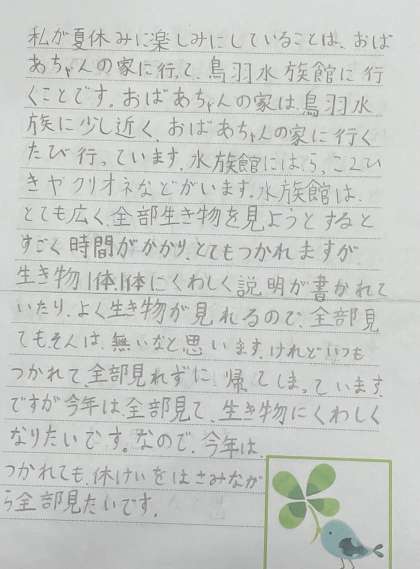 私が夏休みに楽しみにしていることは、おば
あちゃんの家に行って、鳥羽水族館に行
くことです。おばあちゃんの家は、鳥羽水
族に少し近く、おばあちゃんの家に行く
たび行っています。水族館には、らっこ、
きやクリオネなどがいます。水族館は、
とても広く、全部生き物を見ようとすると
すごく時間がかかり、とてもつかれますが、
生き物1体1体にくわしく説明が書かれて
いたり、よく生き物が見れるので、全部見
てもそんは、無いなと思います。けれどいつも
つかれて、全部見れずに、帰てしまっています。
ですが今年は、全部見て、生き物にくわしく
なりたいです。なので、今年は、
つかれても、休けいをはさみなが
ら全部見たいです。